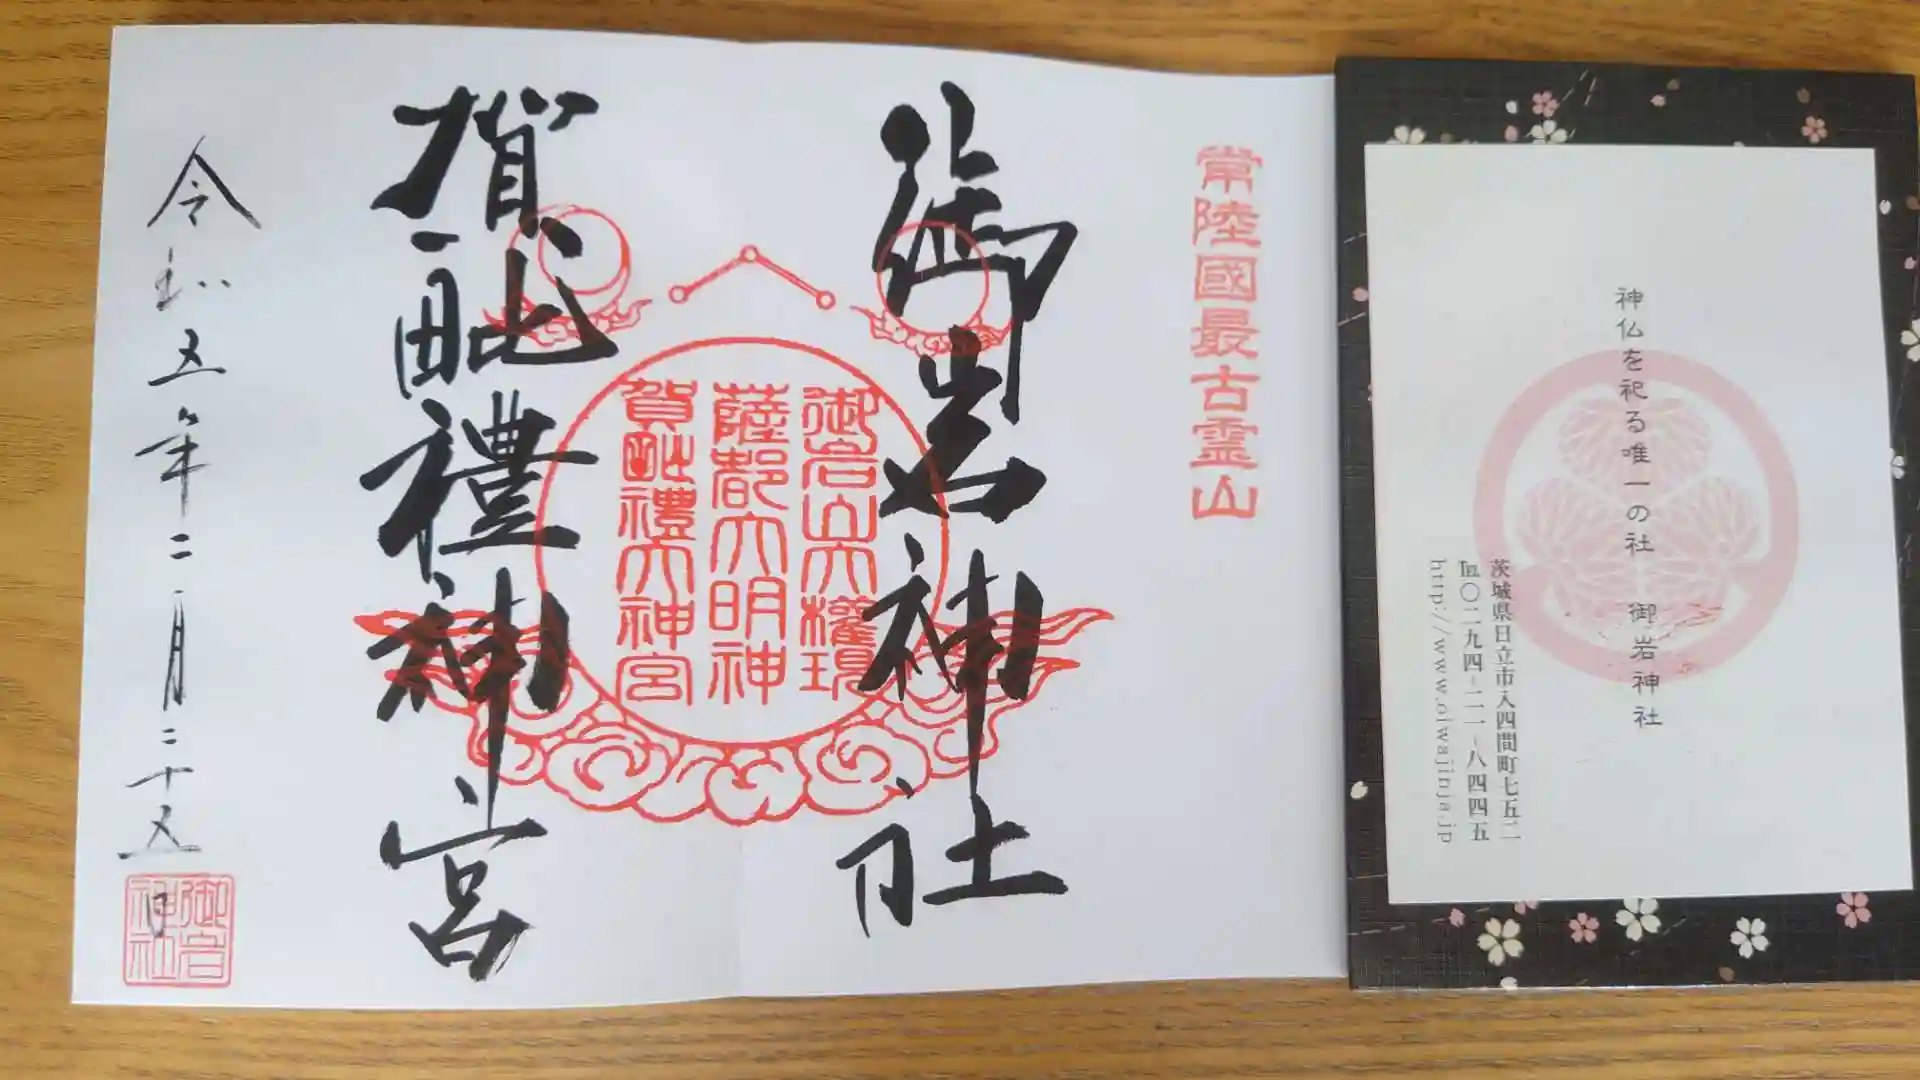 神仏を祀る唯一の社 御岩神社
茨城県日立市入四間町七五二
℡〇二九四-二一-八四四五
http://www.oiwajinja.jp
常陸國最古霊山
御岩神社
御岩山大權現
薩都大明神
賀毗禮大神宮
賀毗禮神宮
令和五年二月二十五日
御岩
神社